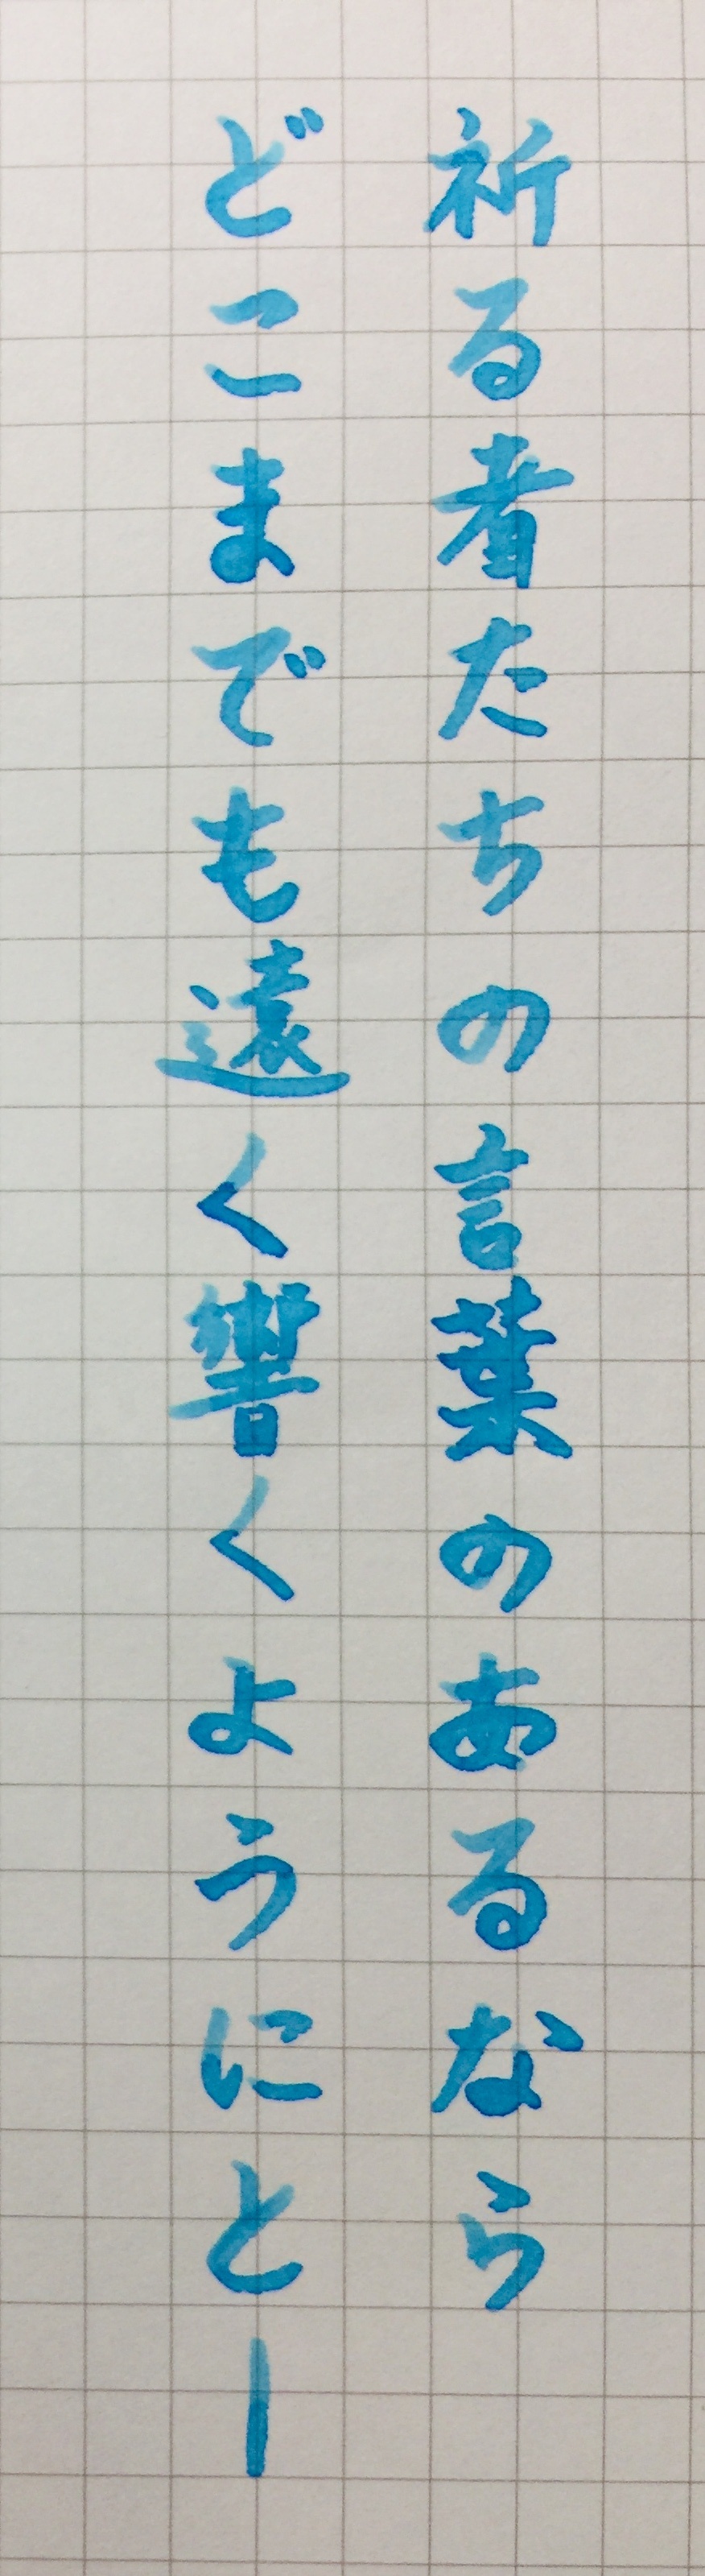 祈る者たちの言葉のあるなら
どこまでも遠く響くようにと―